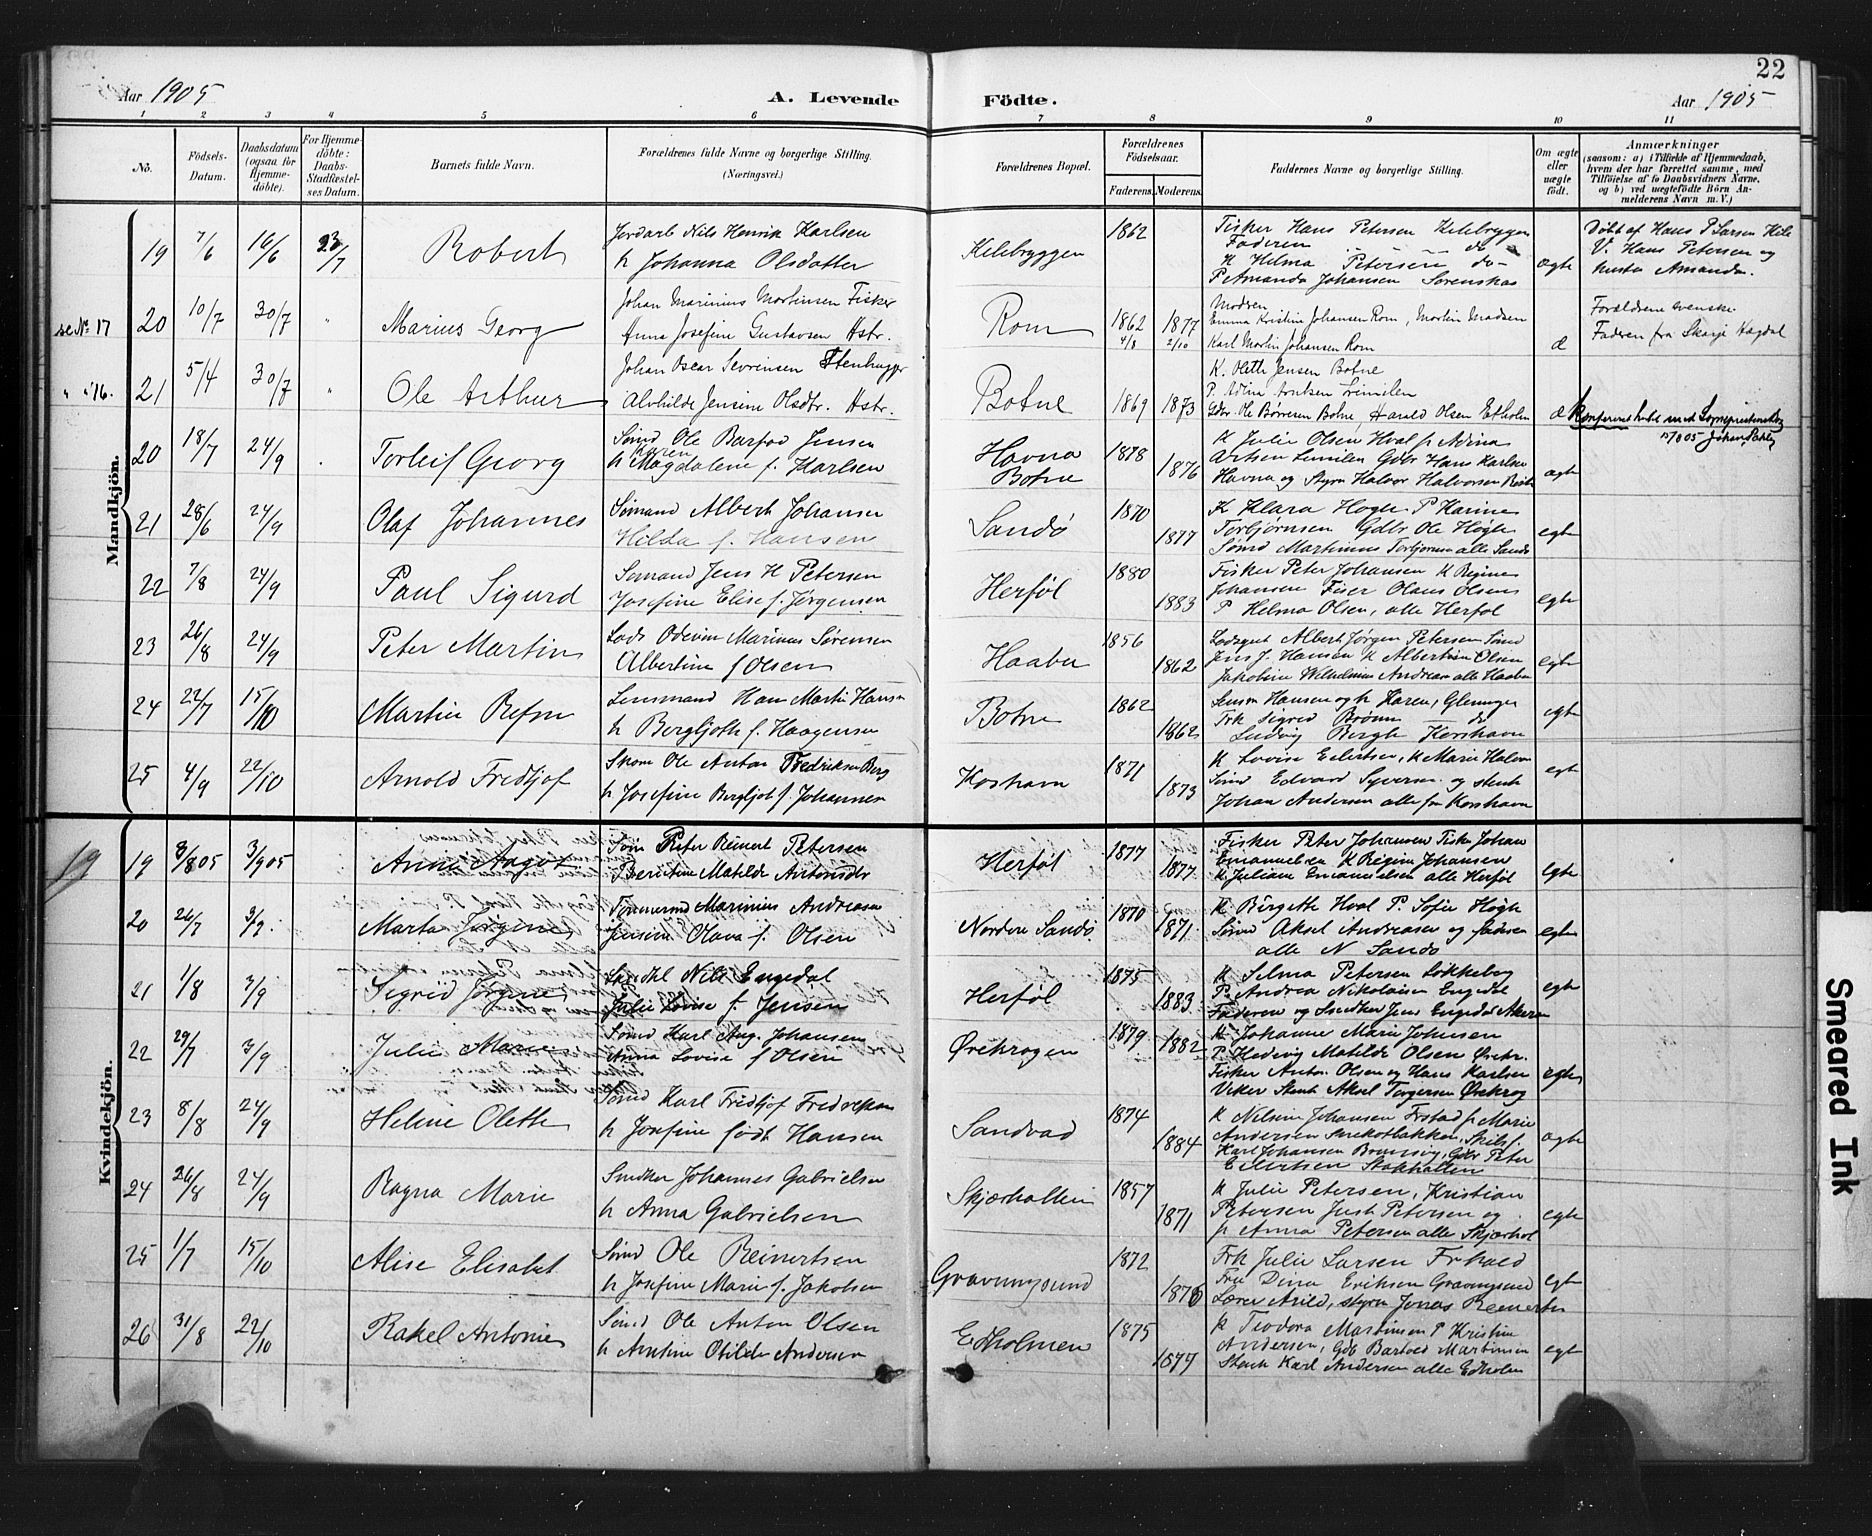 22
Aar 1905
A. Levende
Födte.
Aar 1905
1 2 3 4 5 6 7 8 9 10 11
No.
Födsels-
Datum.
Daabsdatum
(ogsaa för
Hjemme-
döbte).
For Hjemme-
döbte:
Daabs-
Stadfæstel-
ses Datum.
Barnets fulde Navn.
Forældrenes fulde Navne og borgerlige Stilling.
(Næringsvei.)
Forældrenes Bopæl.
Forældrenes
Födselsaar.
Faderens. Moderens.
Faddernes Navne og borgerlige Stilling.
Om ægte
eller
uægte
født.
Anmærkninger
(saasom: a) i Tilfælde af Hjemmedaab,
hvem der har forrettet samme, med
Tilföielse af to Daabsvidners Navne,
og b) ved uægtefödte Börn An-
melderens Navn m. V.)
Mandkjön.
19 7/6 16/6 23/7
Robert
Nils Henrik Karlsen
h Johanna Olsdatter
Kilebryggen
1862
Fisker Hans Petersen Kilebryggen
Faderen
K Helma Petersen do
P Amanda Johansen
ægte
Döbt af Hans P Larsen Kile
V. Hans Petersen og
hustr Amanda.
se No 17
20 10/7 30/7 "
Marius Georg
Johan Marinius Martinsen Fisker
Anna Josefine Gustavsen Hstr.
Rom
1862 1877
4/8 2/10
Modren
Emma Kristin Johansen Rom, Martin Madsen
Karl Martin Johansen Rom
Forældrene svenske
Faderen fra
" " 16.
21 5/4 30/7 "
Ole Arthur
Johan Oscar Sevrinsen Stenhugger
Alvhilde Jensine Olsdtr. Hstr.
Botne
1869 1873
K. Oleth Jensen Botne
Gdbr. Ole Børresen Botne, Harald Olsen Etholm
20 18/7 24/9
Torleif Georg
Sømd Ole Barfod Jensen
Karen
h Magdalene f. Karlsen
Havna
Botne
1878 1876
K Julie Olsen Hval p Adina
Gdbr Hans Karlsen
Havna og Styrm Halvor Halvorsen
ægte
21 28/6 24/9
Olaf Johannes
Sømand Albert Johansen
Hilda f. Hansen
Sandø
1870 1877
K Klara Høgh P Karine
Torbjørnsen Gdbr Ole Høgh
Sømd Martinius Torbjørnsen alle Sandø
egte
22 7/8 24/9
Paul Sigurd
Sømand Jens H Petersen
Josefine Elise f. Jørgensen
Herføl
1880 1883
Fisker Peter Johansen K Regine
Johansen Fisker Olaus Olsen
P Helma Olsen, alle Herføl
egte
23 26/8 24/9
Peter Martin
Lods Marinus Sørensen
Albertine f Olsen
Haabu
1856 1862
Albert Jørgen Petersen Sømd
Jens J. Hansen K Albertine Olsen
Jakobine Wilhelmine Andreasen alle Haabu
egte
24 22/7 15/10
Martin Refn
Lensmand Hans Martin Hansen
h Bergljoth f. Haagensen
Botne
1862 1862
Lensm Hansen og h Karen, Gleninge
Frk Sigrid Brønn do
Ludvig Bergh Korshavn
egte
25 4/9 22/10
Arnold Fredtjof
Skom Ole Anton Fredriksen Berg
h Josefine Bergljot f. Johannesen
Koshavn
1871 1873
K Lovise Eilertsen, K Marie Halvorsen
Sømd Edvard Syversen og stenh
Johan Andersen alle fra Korshavn
egt
Kvindekjön.
19
19 3/8 05 3/9 05
Anna Aagot
Søm Peter Reinert Petersen
Berntine Matilde Antonsdtr
Herføl
1877 1877
Fisker Peter Johansen Fisker Johan
Emanuelsen K Regine Johansen
K. Juliane Emanuelsen alle Herføl
egte
20 26/7 3/9.
Marta Jørgine
Tømmermd Marinius Andreasen
Jensine Olava f. Olsen
Nordre Sandø.
1870 1871
K Birgitte Hval P. Sofie Høgh
Sømd Aksel Andreasen og faderen
alle N Sandø
egte
21 1/8 3/9
Sigrid Jørgine
Nils Engedal
Julie Lovise f. Jensen
Herføl
1875 1883
K Selma Petersen Løkkeberg
P. Andrea Nikolaisen Engedal
Faderen og Smedker Jens Engedal Akerøen
egte
22 29/7 3/9
Julie Marie
Sømd Karl Aug. Johansen
Anna Lovise f Olsen
Ørekrogen
1879 1882
K Johanne Marie Johnsen
P Hedevig Matilde Olsen Ørekr.
Fisker Anton Olsen og Hans Karlsen
Viker Stenh Aksel Torgersen Ørekrog
egte
23 8/8 24/9
Helene Oleth
Sømd Karl Fredtjof Fredriksen
h Josefine født Hansen
Sandvad
1874 1884
K Nelsine Johansen p Marie
Andersen Smekotbakken, Skibsf.
Karl Johansen Gdbr Peter
Eilertsen Stokhallen
ægte
24 26/8 24/9
Ragna Marie
Smedker Johannes Gabrielsen
h Anna Gabrielsen
Skjærhallen
1857 1871
K Julie Petersen, Kristian
Petersen Just Petersen og
p Anna Petersen alle Skjærhal
egte
25 1/7 15/10
Alise Elisabet
Sømd Ole Reinertsen
h Josefine Marie f. Jakobsen
Gravningsund
1872 1876
Frk Julie Larsen
Fru Dina Eriksen Gravnigsund
Lærer Arild, styrm Jonas Reinertsen
egte
26 31/8 22/10
Rakel Antonie
Sømd Ole Anton Olsen
h Antine Otilde Andersen
Edholmen
1875 1877
K Teodora Martinsen P Kristine
Andersen, Gdb Bartold Martinsen
Stenh Karl Andersen alle Edholm
egte
Smeared Ink